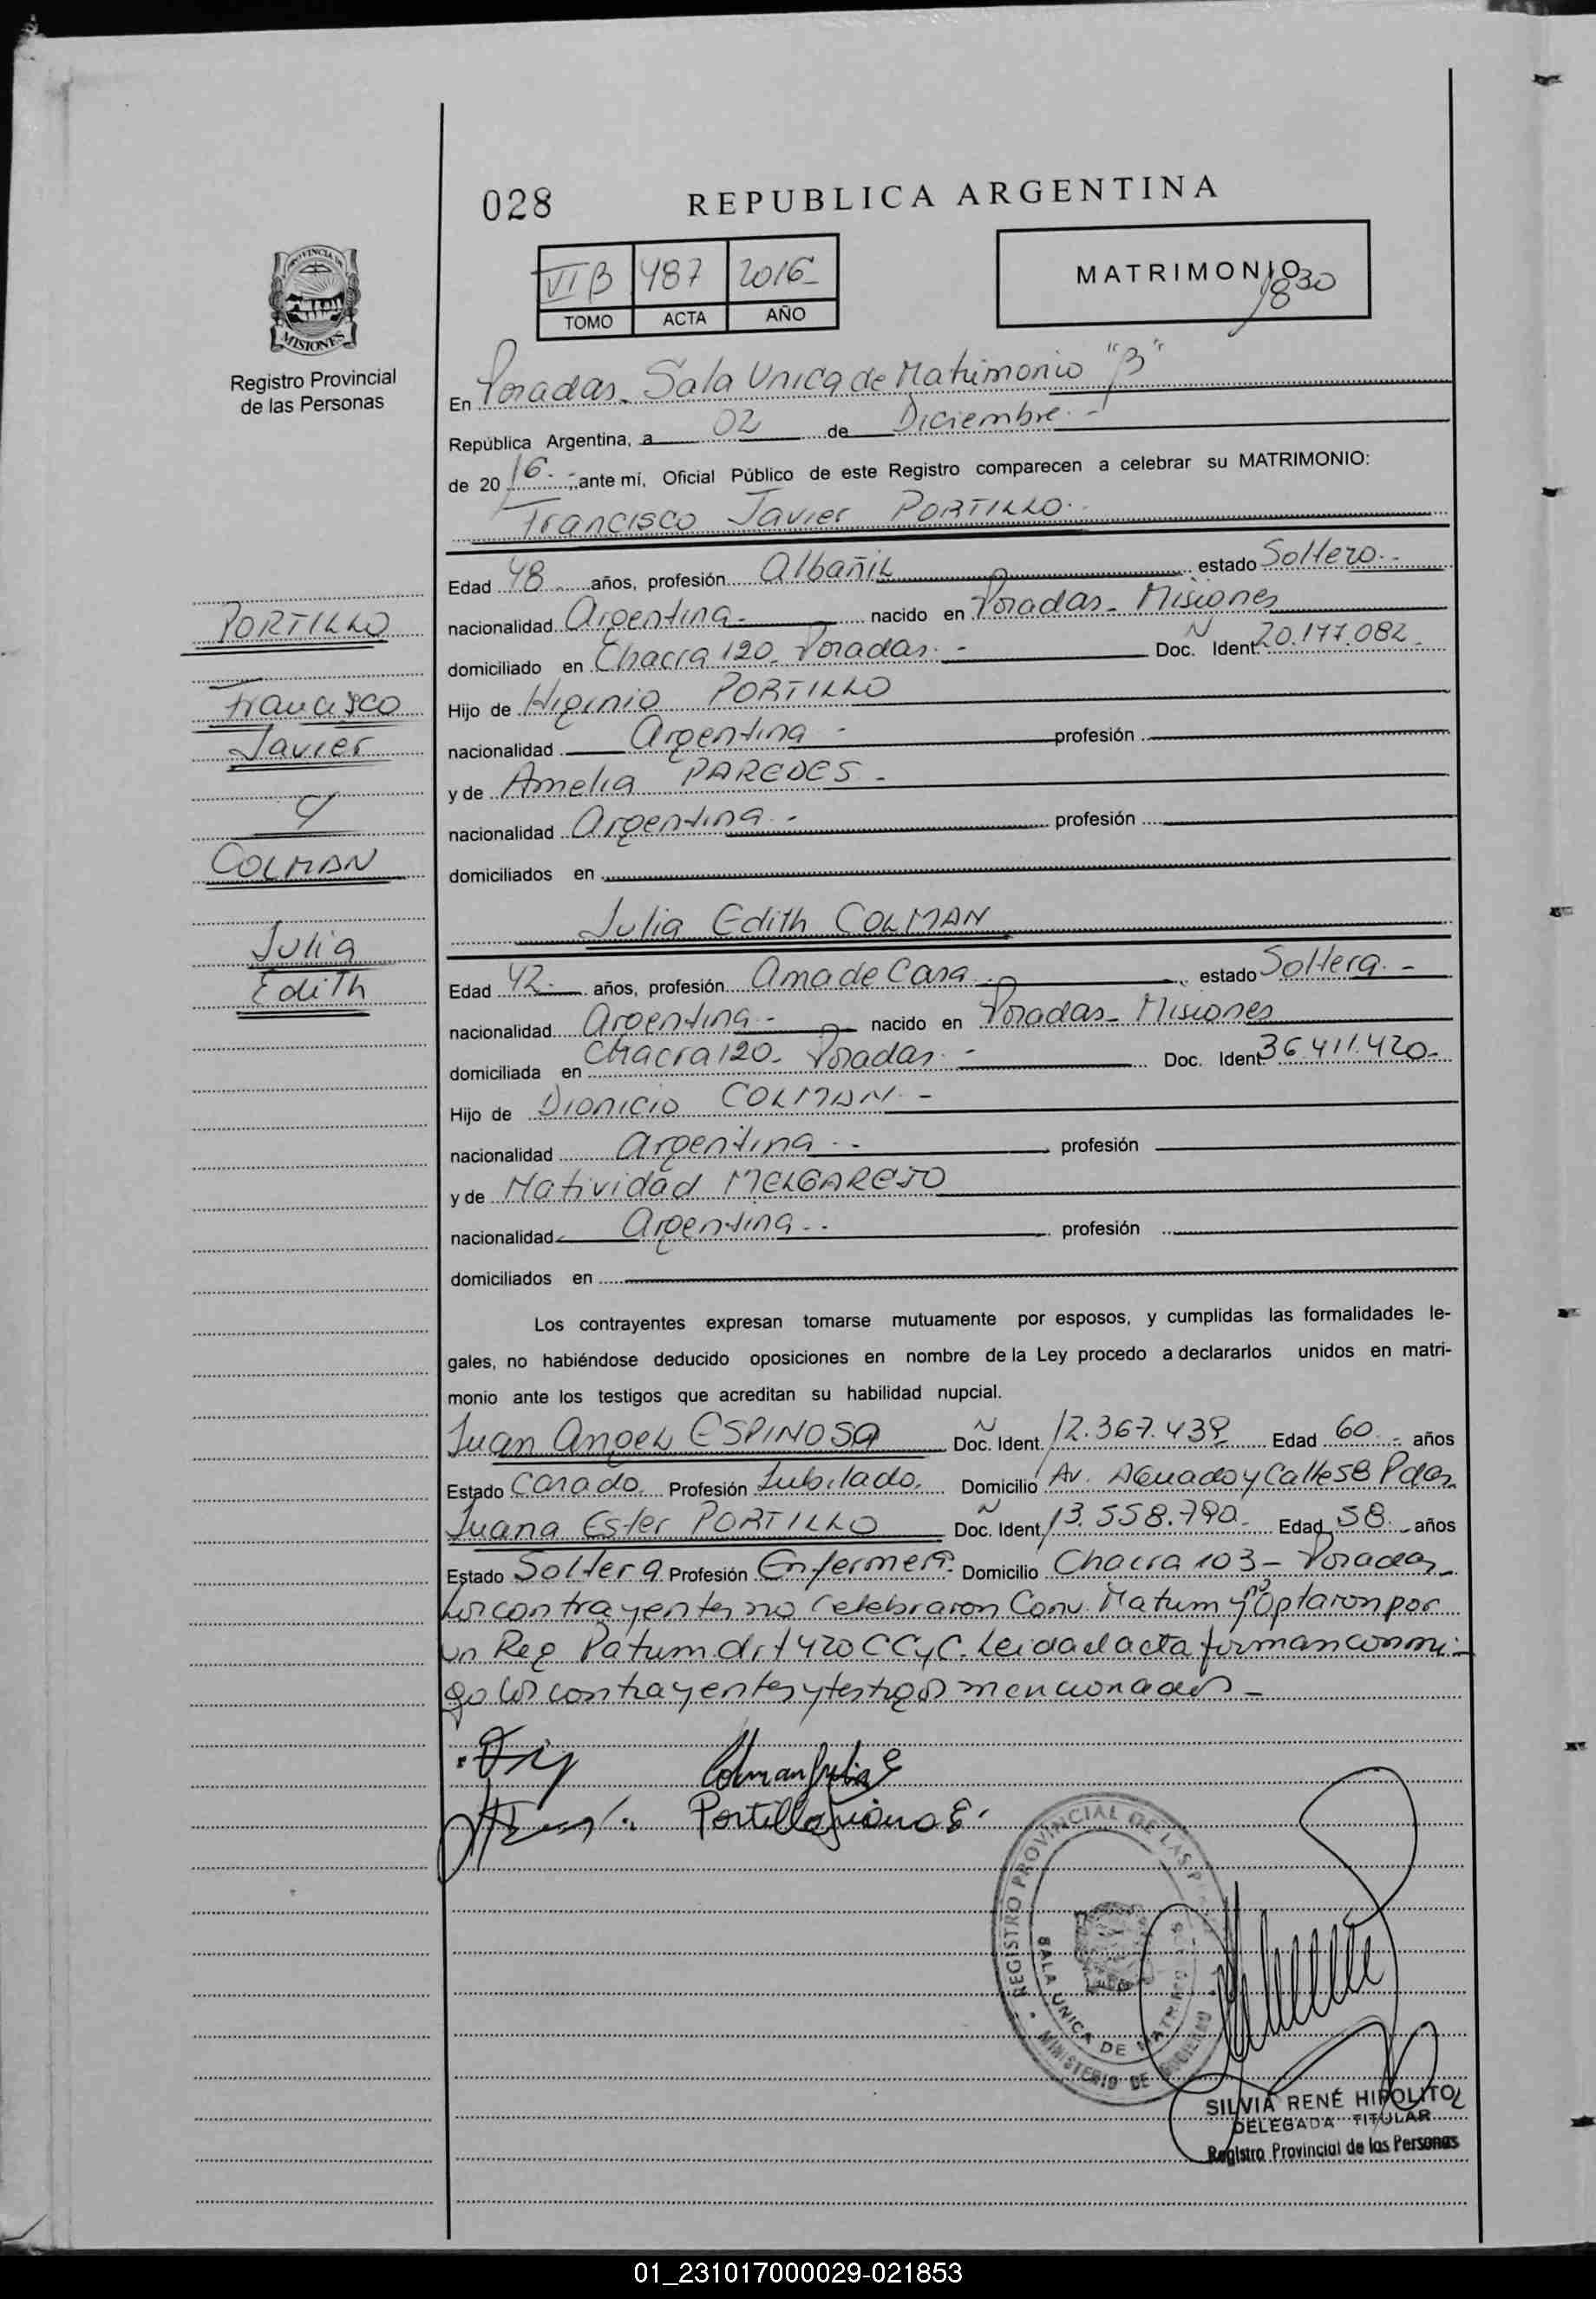 028
REPUBLICA ARGENTINA
PROVINCIA DE
MISIONES
Registro Provincial
de las Personas
VI B 487 2016
TOMO ACTA AÑO
MATRIMONIO
1830
En Posadas. Sala Unica de Matrimonio "B"
República Argentina, a 02 de Diciembre.-
de 2016.- ante mí, Oficial Público de este Registro comparecen a celebrar su MATRIMONIO:
Francisco Javier PORTILLO.
Edad 48 años, profesión Albañil estado Soltero.-
nacionalidad Argentina.- nacido en Posadas - Misiones
domiciliado en Chacra 120. Posadas.- Doc. Ident. N 20.177.082.
Hijo de Higinio PORTILLO
nacionalidad Argentina - profesión
y de Amelia PAREDES -
nacionalidad Argentina.- profesión
domiciliados en
Julia Edith COLMAN
Edad 42.- años, profesión Ama de Casa.- estado Soltera.-
nacionalidad Argentina.- nacido en Posadas - Misiones
domiciliada en Chacra 120. Posadas.- Doc. Ident. 36.411.420.-
Hijo de Dionicio COLMAN.-
nacionalidad Argentina.- profesión
y de Natividad MELGAREJO
nacionalidad Argentina.- profesión
domiciliados en
PORTILLO
Francisco
Javier
y
COLMAN
Julia
Edith
Los contrayentes expresan tomarse mutuamente por esposos, y cumplidas las formalidades le-
gales, no habiéndose deducido oposiciones en nombre de la Ley procedo a declararlos unidos en matri-
monio ante los testigos que acreditan su habilidad nupcial.
Juan Angel ESPINOSA Doc. Ident. N 12.367.439 Edad 60.- años
Estado Casado. Profesión Jubilado. Domicilio Av. Aguado y Calle 58 Pdas.
Juana Ester PORTILLO Doc. Ident. N 13.558.790.- Edad 58.- años
Estado Soltera Profesión Enfermera. Domicilio Chacra 103 - Posadas.
Los contrayentes no celebraron Conv. Matrim y no Optaron por
un Reg Patrim. art 420 CCyC. Leida el acta firman conmi-
go los contrayentes y testigos mencionados -
Colman Julia E
Portillo Juana E.
REGISTRO PROVINCIAL DE LAS P
SALA UNICA DE MATRIMONIOS
MINISTERIO DE GOBIERNO
SILVIA RENÉ HIPOLITO
DELEGADA TITULAR
Registro Provincial de las Personas
01_231017000029-021853